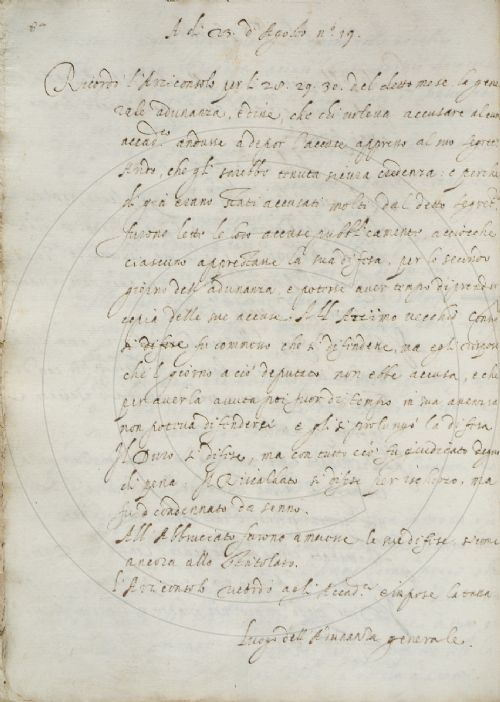 A dì 23. d'Agosto n.° 19.
Ricordò l'Arziconsolo per li 28. 29. 30. del detto mese la gene
rale adunanza, e disse, che chi voleva accusare alcun
accad.co andasse a depor l'accuse appresso al suo segret
che gli sarebbe tenuta sicura credenza: e perche
di già erano stati accusati molti dal detto segret.
furono lette le loro accuse pubblicamente, acciocche
ciascuno apprestasse la sua difesa, per lo secondo
giorno dell'adunanza, e potesse aver tempo di prender
copia delle sue accuse.
si difese fu commesso che si difendesse, ma egli rispose
che 'l giorno a ciò deputato non ebbe accusa, e che
per averla avuta poi fuor di tempo in sua assenza
non poteva difendersi, e gli si prolungò la difesa
Il Duro si difese, ma con tutto ciò fu giudicato degno
di pena: Il Riscaldato si difese per ischerzo, ma
fu condennato da senno.
All'Abbruciato furono ammesse le sue difese, sicome
ancora allo
l'Arziconsolo ricordò agl'Accad.ci e impose la tassa
Luogo dell'Adunanza generale.